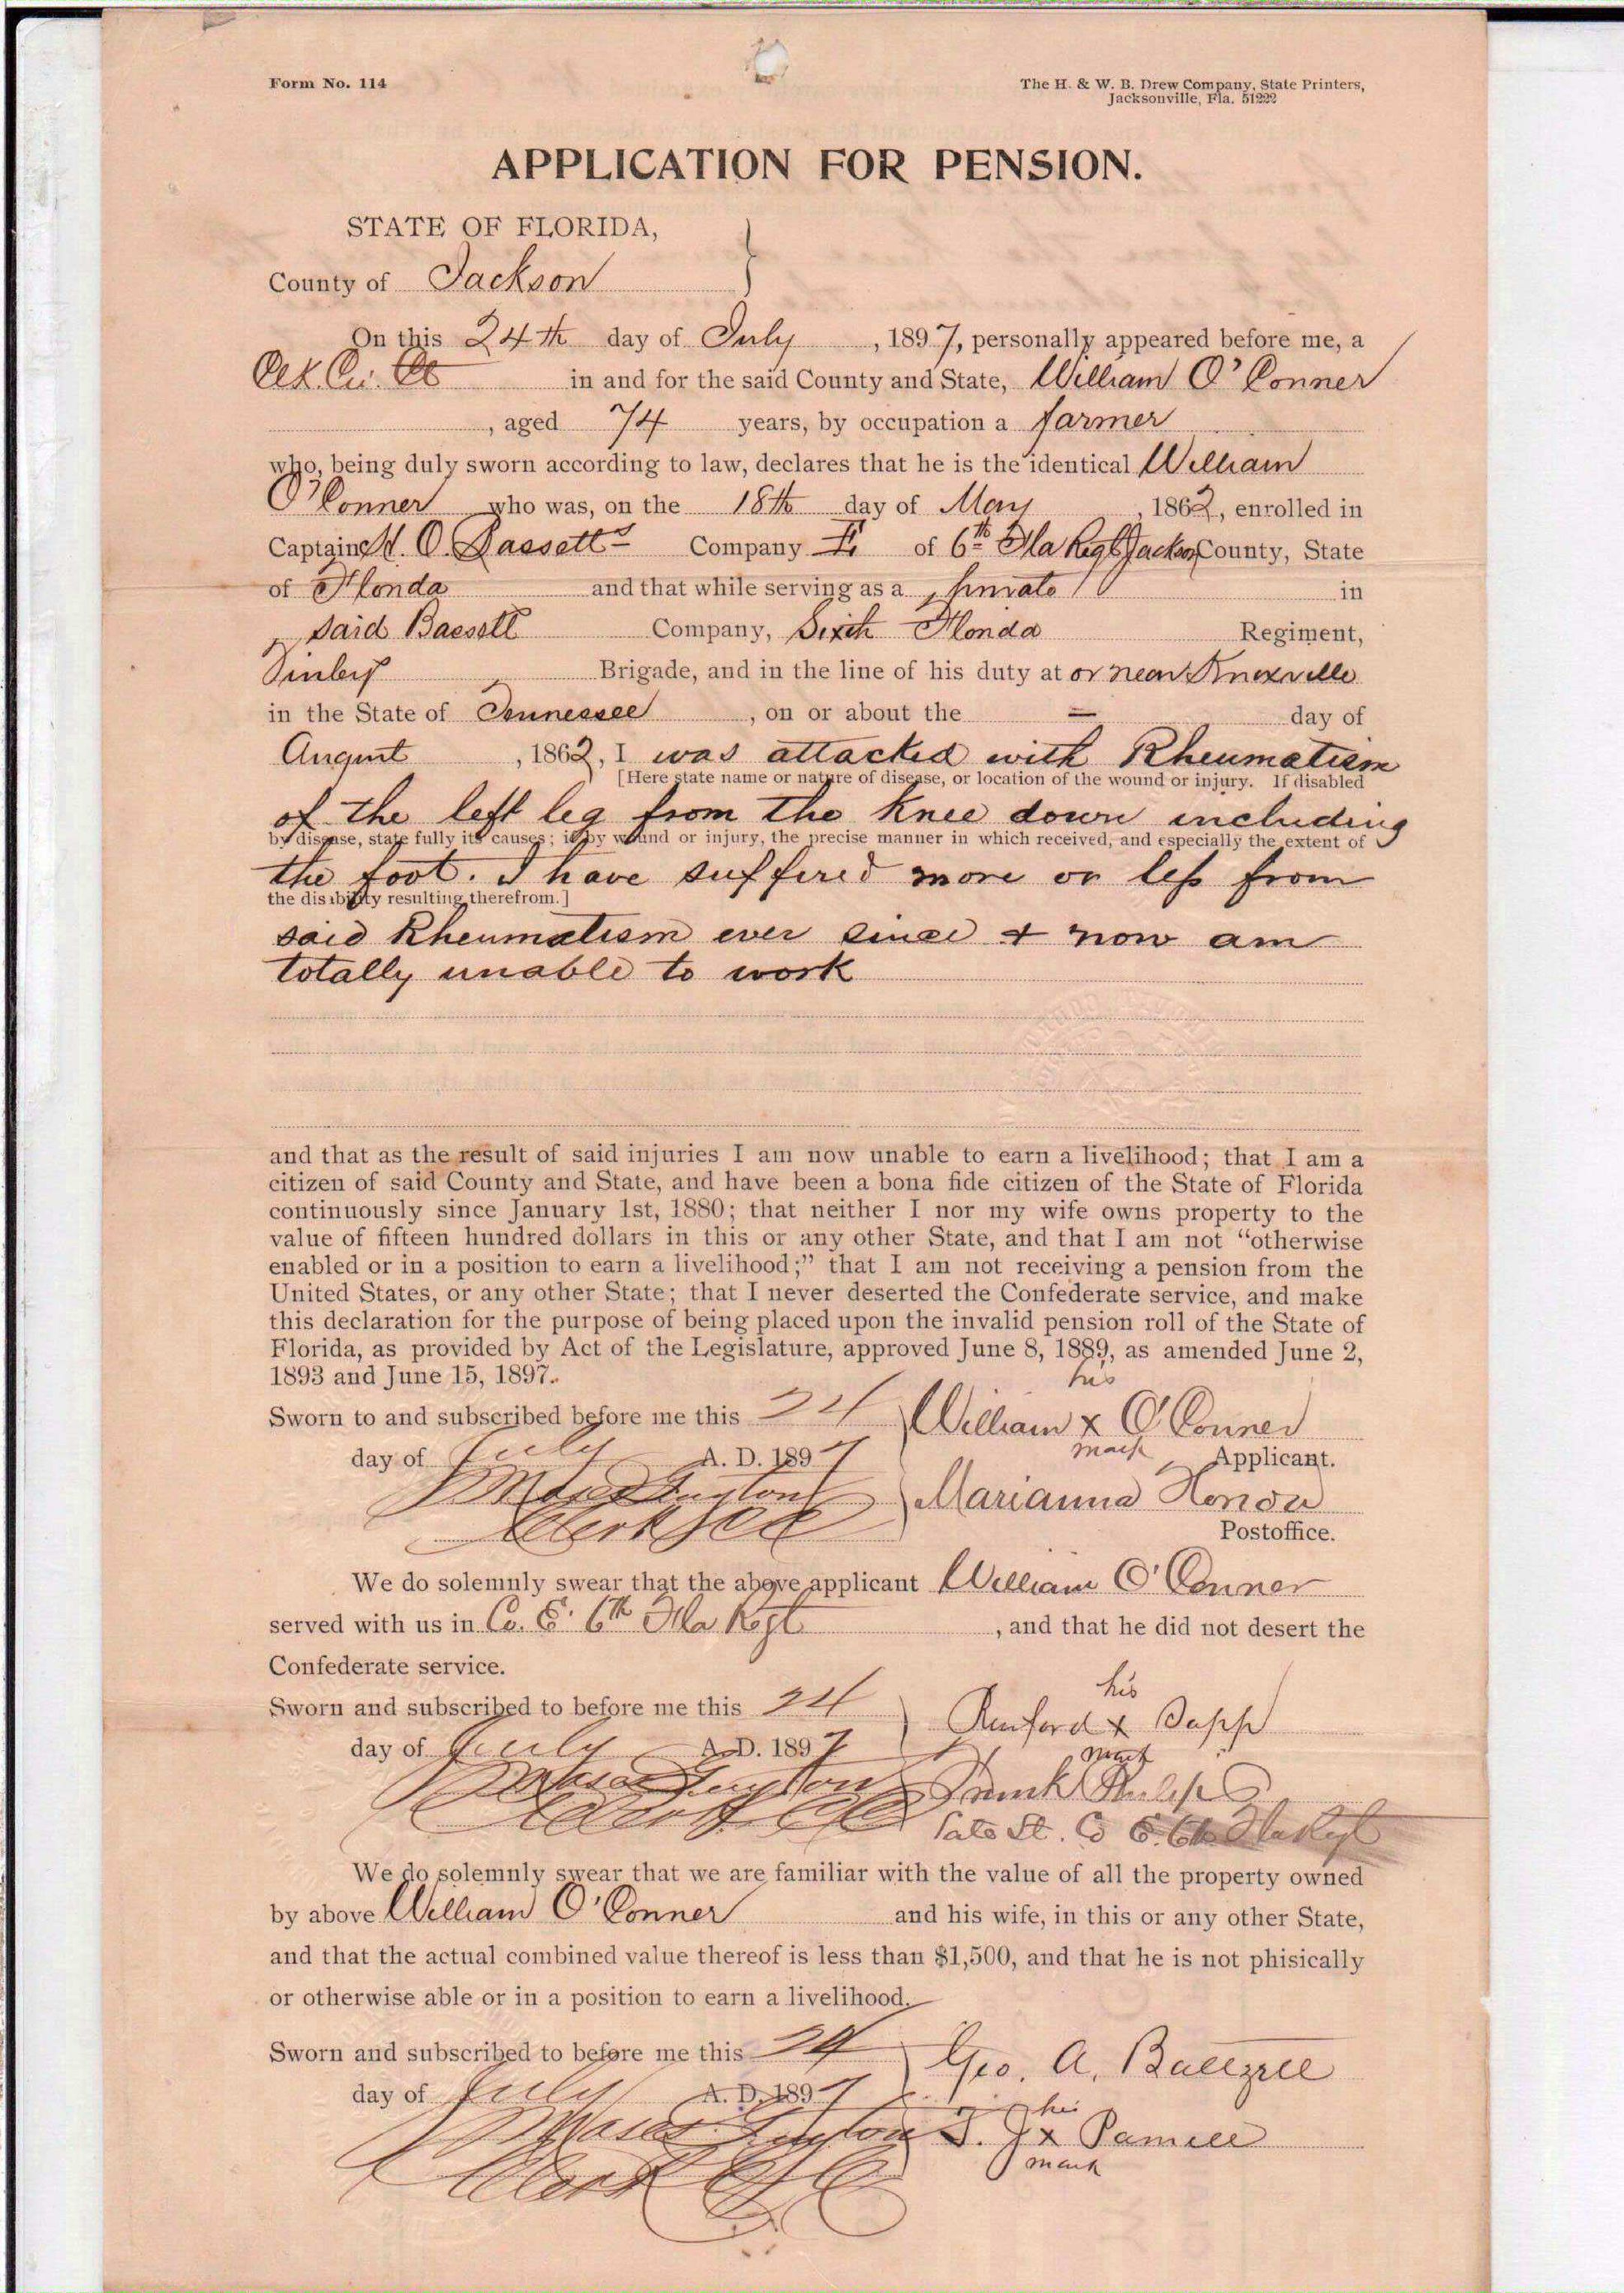 Form No. 114
The H. & W. B. Drew Company, State Printers,
Jacksonville, Fla. 51222
APPLICATION FOR PENSION.
STATE OF FLORIDA,
County of Jackson
On this 24th day of July, 1897, personally appeared before me, a
Clk. Cir. Ct in and for the said County and State, William O'Conner
, aged 74 years, by occupation a farmer
who, being duly sworn according to law, declares that he is the identical William
O'Conner who was, on the 18th day of May, 1862, enrolled in
Captain H. O. Bassett's Company E of 6th Fla Regt Jackson County, State
of Florida and that while serving as a private in
said Bassett Company, Sixth Florida Regiment,
Finleys Brigade, and in the line of his duty at or near Knoxville
in the State of Tennessee, on or about the — day of
August, 1862, I was attacked with Rheumatism
[Here state name or nature of disease, or location of the wound or injury. If disabled
of the left leg from the knee down including
by disease, state fully its causes; if by wound or injury, the precise manner in which received, and especially the extent of
the foot. I have suffered more or less from
the disibility resulting therefrom.]
said Rheumatism ever since & now am
totally unable to work
and that as the result of said injuries I am now unable to earn a livelihood; that I am a
citizen of said County and State, and have been a bona fide citizen of the State of Florida
continuously since January 1st, 1880; that neither I nor my wife owns property to the
value of fifteen hundred dollars in this or any other State, and that I am not "otherwise
enabled or in a position to earn a livelihood;" that I am not receiving a pension from the
United States, or any other State; that I never deserted the Confederate service, and make
this declaration for the purpose of being placed upon the invalid pension roll of the State of
Florida, as provided by Act of the Legislature, approved June 8, 1889, as amended June 2,
1893 and June 15, 1897.
his
Sworn to and subscribed before me this 24 William x O'Conner
mark
day of July A. D. 1897 Applicant.
Moses Guyton Marianna Florida
Clerk CC
Postoffice.
We do solemnly swear that the above applicant William O'Conner
served with us in Co. E. 6th Fla Regt, and that he did not desert the
Confederate service.
his
Sworn and subscribed to before me this 24 Buford x Sapp
mark
day of July A. D. 1897
Moses Guyton Frank Philips
Clerk CC Late Lt. Co E. 6th Fla Regt
We do solemnly swear that we are familiar with the value of all the property owned
by above William O'Conner and his wife, in this or any other State,
and that the actual combined value thereof is less than $1,500, and that he is not phisically
or otherwise able or in a position to earn a livelihood.
Sworn and subscribed to before me this 24 Geo. A. Baltzell
day of July A. D. 1897
his
Moses Guyton T. J. x Pamell
mark
Clerk CC